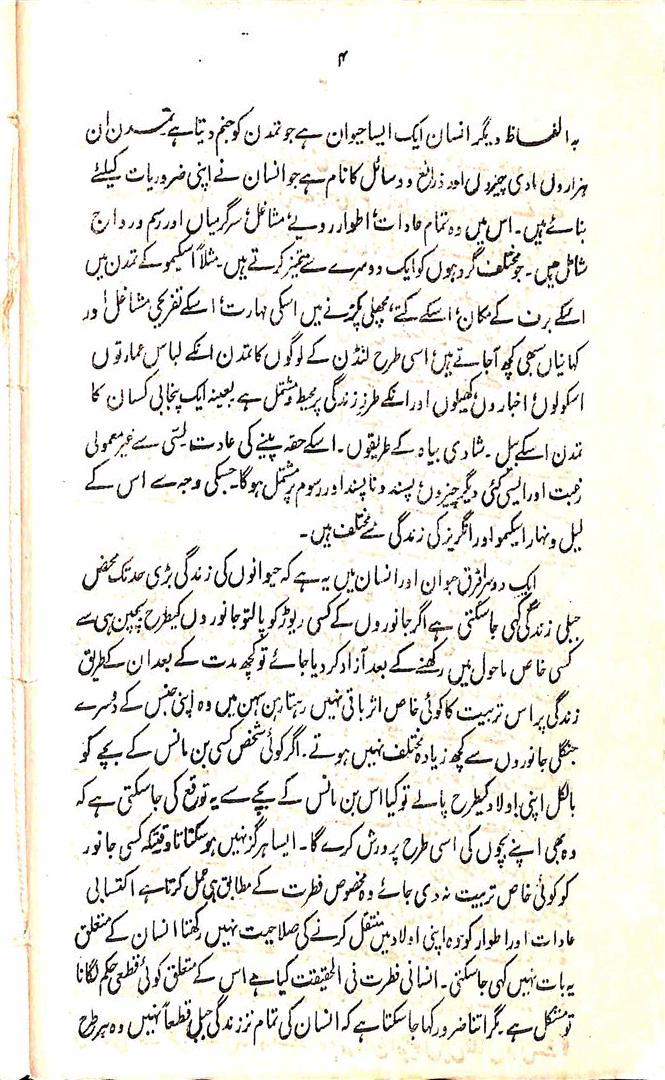 ۴
بہ الفاظ دیگر انسان ایک ایسا حیوان ہے جو تمدن کو جنم دیتا ہے۔ تمدن ان
ہزاروں مادی چیزوں اور ذرائع و وسائل کا نام ہے جو انسان نے اپنی ضروریات کیلئے
بنائے ہیں۔ اس میں وہ تمام عادات، اطوار، رویے، مشاغل، سرگرمیاں اور رسم و رواج
شامل ہیں۔ جو مختلف گروہوں کو ایک دوسرے سے متمیز کرتے ہیں۔ مثلاً اسکیمو کے تمدن میں
اسکے برف کے مکان، اسکے کتے، مچھلی پکڑنے میں اسکی مہارت، اسکے تفریحی مشاغل اور
کہانیاں سبھی کچھ آجاتے ہیں، اسی طرح لنڈن کے لوگوں کا تمدن انکے لباس عمارتوں
اسکولوں، اخباروں، کھیلوں اور انکے طرز زندگی پر محیط و مشتمل ہے بعینہ ایک پنجابی کسان کا
تمدن اسکے بیل۔ شادی بیاہ کے طریقوں۔ اسکے حقہ پینے کی عادت، لسی سے غیر معمولی
رغبت اور ایسی کئی دیگر چیزوں، پسند و ناپسند اور رسوم پر مشتمل ہوگا۔ جسکی وجہ سے اس کے
لیل و نہار ایسکیمو اور انگریز کی زندگی سے مختلف ہیں۔
ایک دوسرا فرق حیوان اور انسان میں یہ ہے کہ حیوانوں کی زندگی بڑی حد تک محض
جبلی زندگی کہی جاسکتی ہے اگر جانوروں کے کسی ریوڑ کو پالتو جانوروں کیطرح بچپن ہی سے
کسی خاص ماحول میں رکھنے کے بعد آزاد کر دیا جائے تو کچھ مدت کے بعد ان کے طریق
زندگی پر اس تربیت کا کوئی خاص اثر باقی نہیں رہتا رہن سہن میں وہ اپنی جنس کے دوسرے
جنگلی جانوروں سے کچھ زیادہ مختلف نہیں ہوتے۔ اگر کوئی شخص کسی بن مانس کے بچے کو
بالکل اپنی اولاد کیطرح پالے تو کیا اس بن مانس کے بچے سے یہ توقع کی جاسکتی ہے کہ
وہ بھی اپنے بچوں کی اسی طرح پرورش کرے گا۔ ایسا ہرگز نہیں ہوسکتا تاوقتیکہ کسی جانور
کو کوئی خاص تربیت نہ دی جائے وہ مخصوص فطرت کے مطابق ہی عمل کرتا ہے اکتسابی
عادات اور اطوار کو وہ اپنی اولاد میں منتقل کرنے کی صلاحیت نہیں رکھتا انسان کے متعلق
یہ بات نہیں کہی جاسکتی۔ انسانی فطرت فی الحقیقت کیا ہے اس کے متعلق کوئی قطعی حکم لگانا
تو مشکل ہے۔ مگر اتنا ضرور کہا جاسکتا ہے کہ انسان کی تمام تر زندگی جبلی قطعاً نہیں وہ ہر طرح